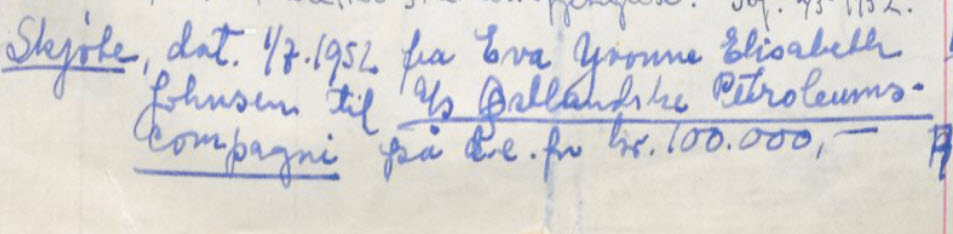 Skjøte, dat. 1/7.1952 fra Eva Yvonne Elisabeth
Johnsen til A/S Østlandske Petroleums-
compagni på d.e. for kr. 100.000,-